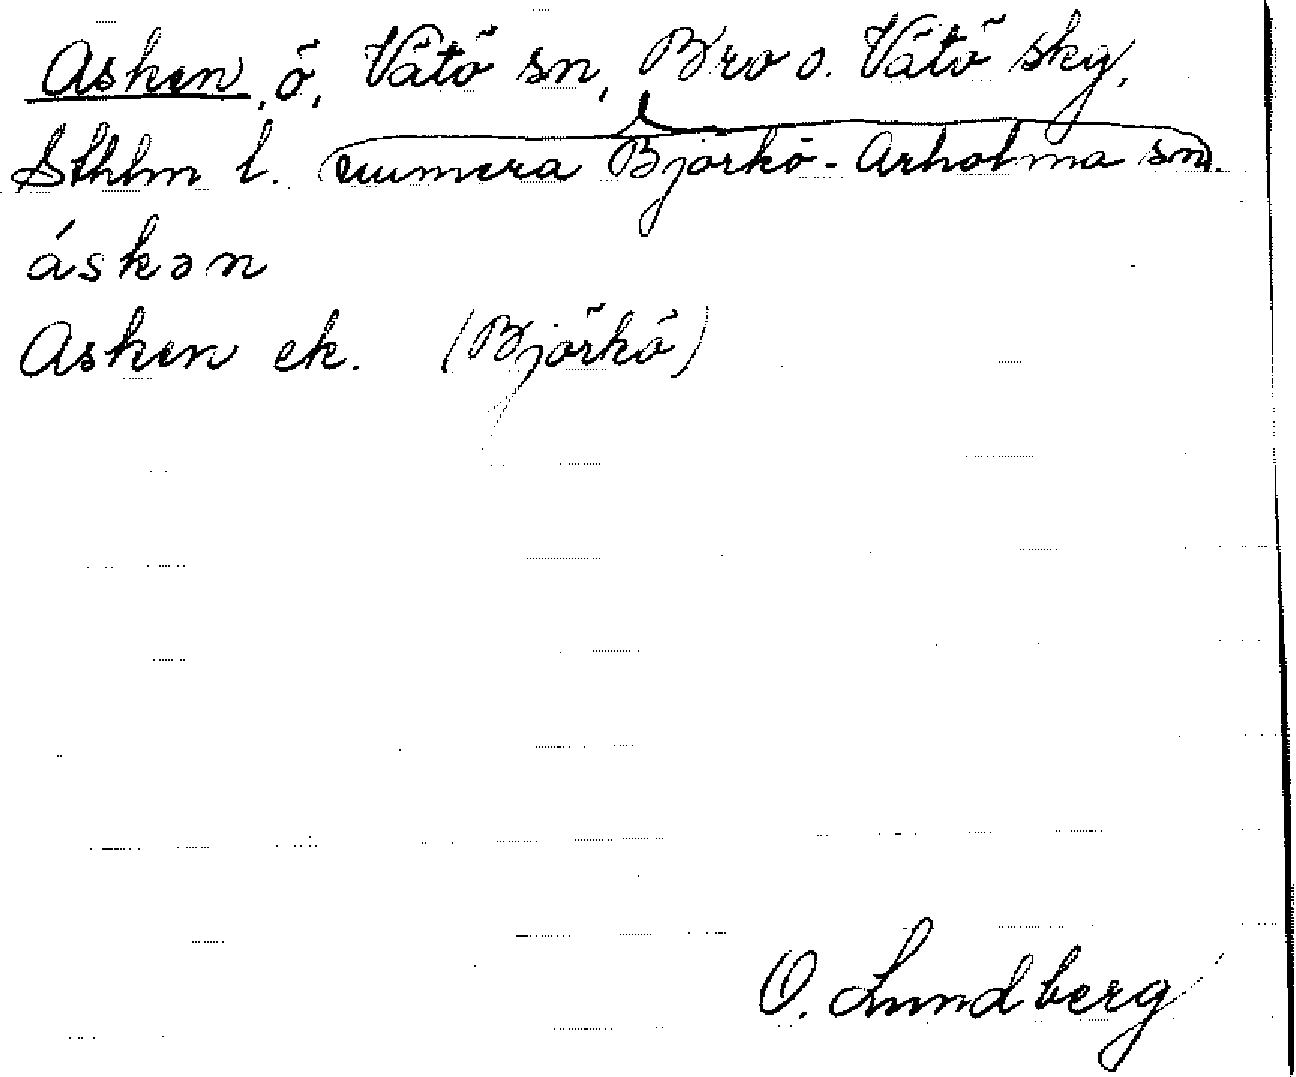 Asken, ö, Vätö sn, Bro o. Vätö sky,
Sthlm l. (numera Björkö-Arholma sn).
áskən
Asken ek. (Björkö)
O. Lundberg